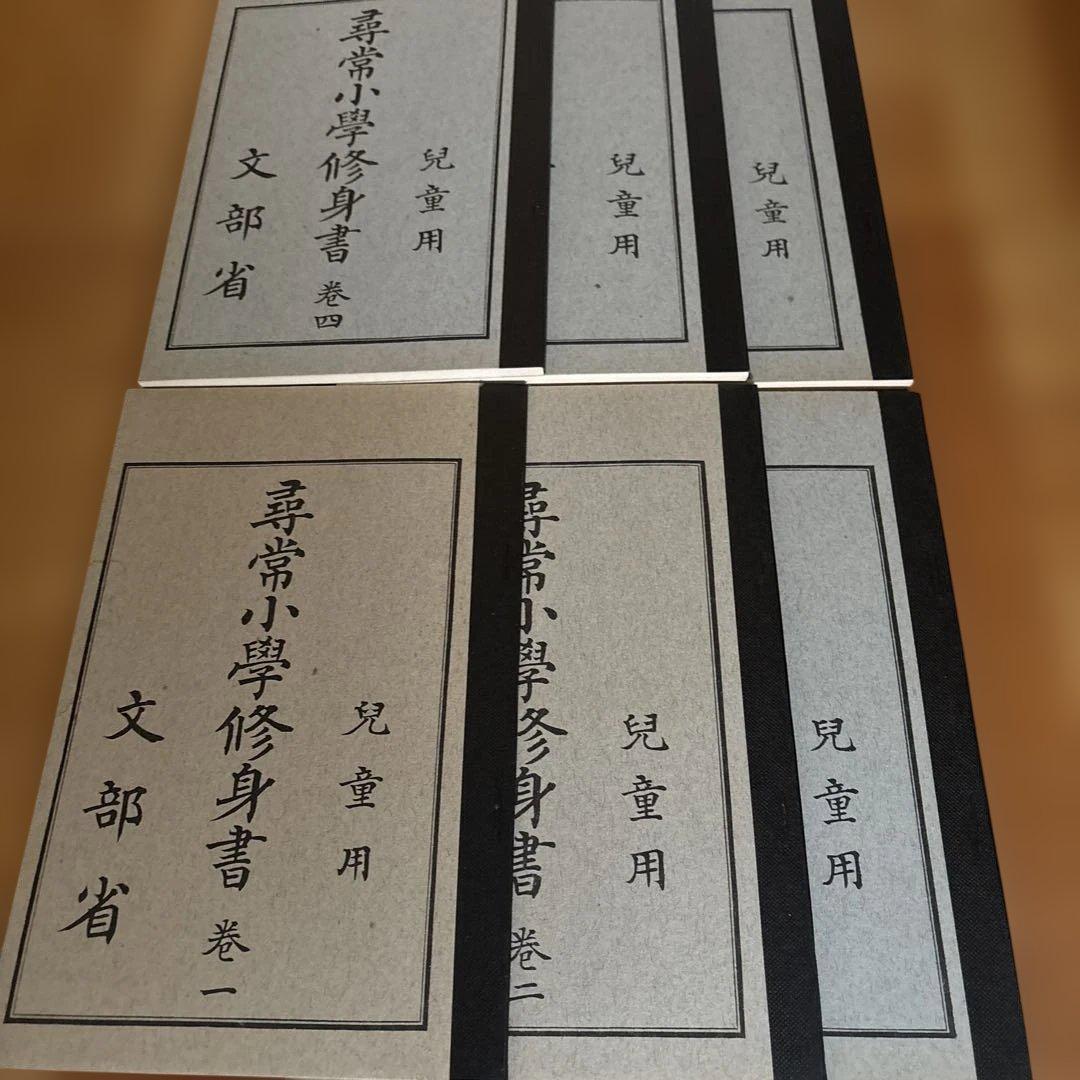 兒童用
尋常小學修身書 卷四
文部省
兒童用
兒童用
兒童用
尋常小學修身書 卷一
文部省
兒童用
尋常小學修身書 卷二
兒童用